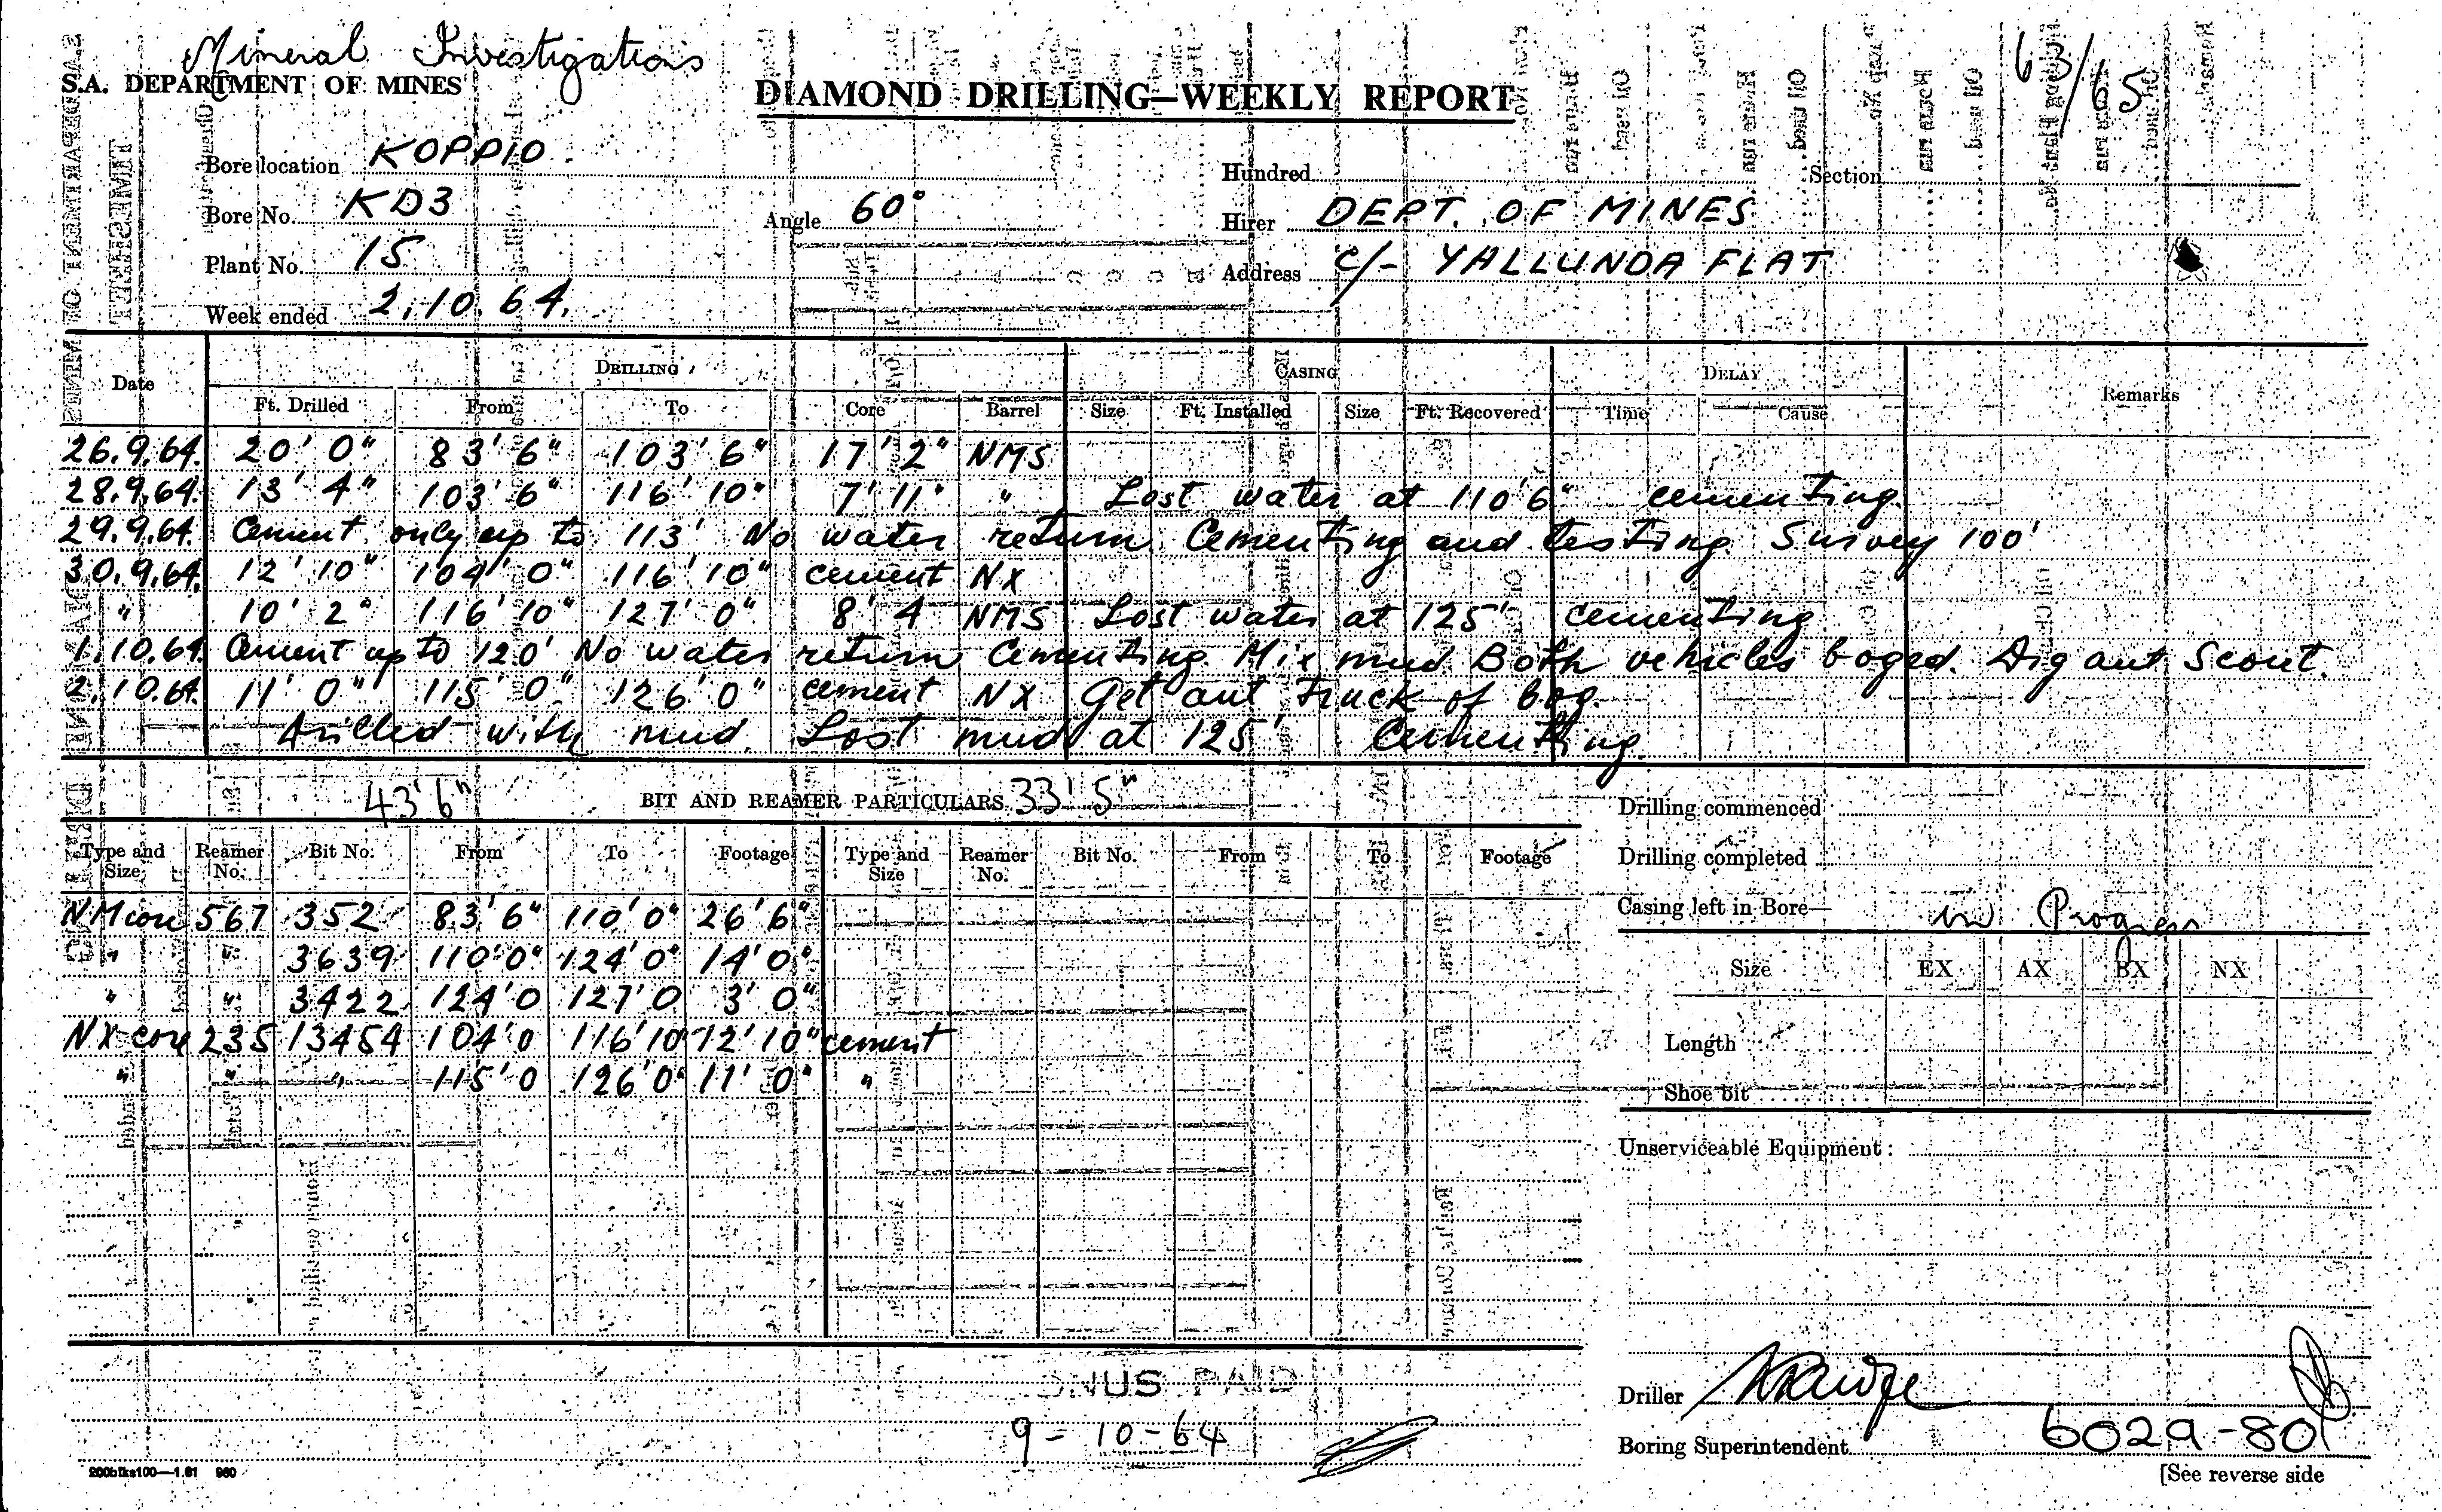 Mineral Investigations
S.A. DEPARTMENT OF MINES
DIAMOND DRILLING—WEEKLY REPORT
63/65
Bore location KOPPIO
Hundred Section
Bore No. KD3 Angle 60° Hirer DEPT. OF MINES
Plant No. 15 Address C/- YALLUNDA FLAT
Week ended 2.10.64.
Date DRILLING CASING DELAY Remarks
Ft. Drilled From To Core Barrel Size Ft. Installed Size Ft. Recovered Time Cause
26.9.64. 20' 0" 83' 6" 103' 6" 17' 2" NMS
28.9.64. 13' 4" 103' 6" 116' 10" 7' 11" " Lost water at 110'6" cementing.
29.9.64. Cement only up to 113' No water return. Cementing and testing. Survey 100'
30.9.64. 12' 10" 104' 0" 116' 10" cement NX
" 10' 2" 116' 10" 127' 0" 8' 4 NMS Lost water at 125' cementing
1.10.64. Cement up to 120' No water return Cementing. Mix mud Both vehicles boged. Dig out Scout.
2.10.64. 11' 0" 115' 0" 126' 0" cement NX Get out truck of bog.
Drilled with mud. Lost mud at 125' Cementing.
43'6" BIT AND REAMER PARTICULARS 33' 5"
Drilling commenced
Type and Size Reamer No. Bit No. From To Footage Type and Size Reamer No. Bit No. From To Footage
Drilling completed
Casing left in Bore— in Progress
NM core 567 352 83' 6" 110' 0" 26' 6"
" " 3639 110' 0" 124' 0" 14' 0"
Size EX AX BX NX
" " 3422 124' 0 127' 0 3' 0"
NX core 235 13454 104' 0 116' 10" 12' 10" cement
Length
" " " 115' 0 126' 0" 11' 0" "
Shoe bit
Unserviceable Equipment :
PAID
9-10-64
Driller
Boring Superintendent 6029-80
200blks100—1.61 960
[See reverse side